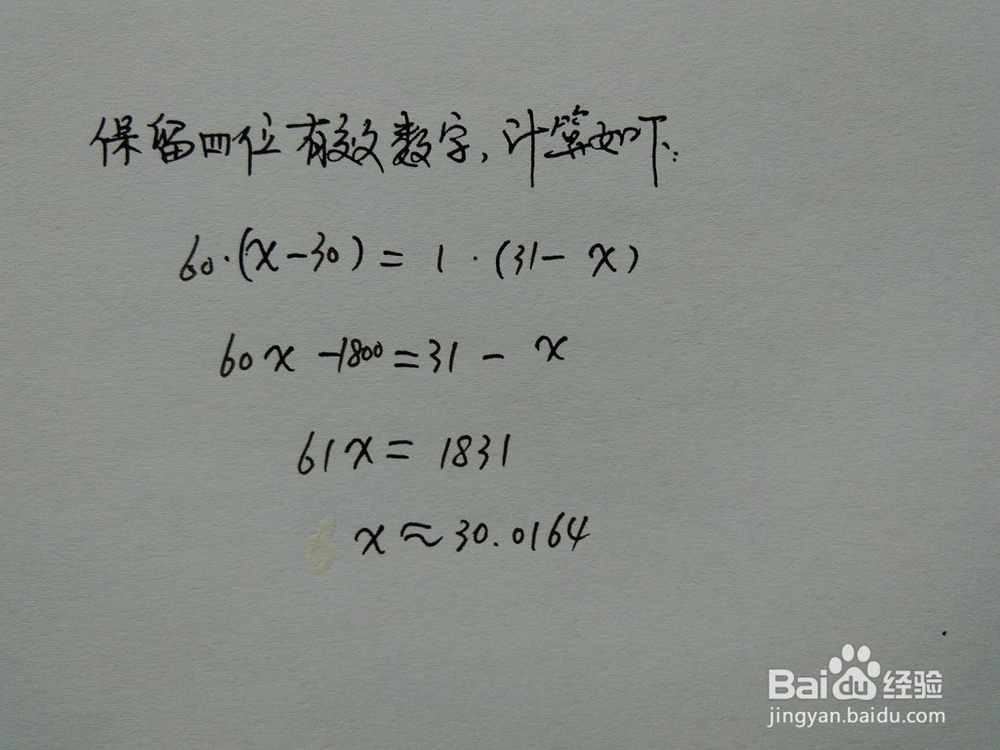 保留四位有效数字,计算如下:
60·(x-30)=1·(31-x)
60x-1800=31-x
61x=1831
x≈30.0164
Baidu经验
jingyan.baidu.com